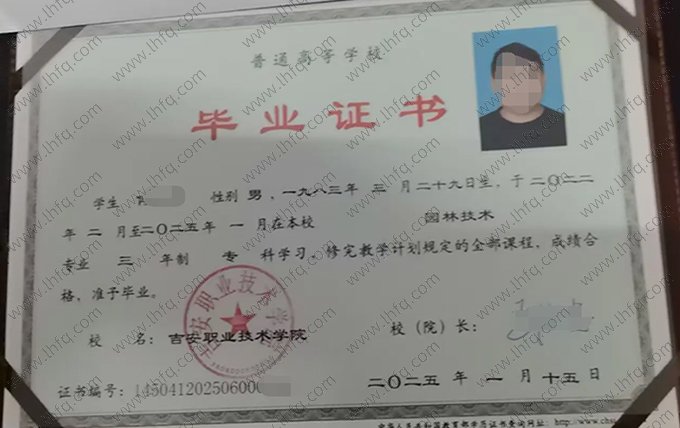 普通高等学校
毕业证书
学生 性别 男，一九八三年 三 月二十九日生，于二〇二二
年 二 月至二〇二五年 一 月在本校 园林技术
专业 三 年制 专 科学习，修完教学计划规定的全部课程，成绩合
格，准予毕业。
校 名：吉安职业技术学院 校（院）长：
吉安职业技术学院
证书编号：1450412025060 二〇二五 年 一 月 十五 日
中华人民共和国教育部学历证书查询网址：http://www.chs
www.lhfq.com